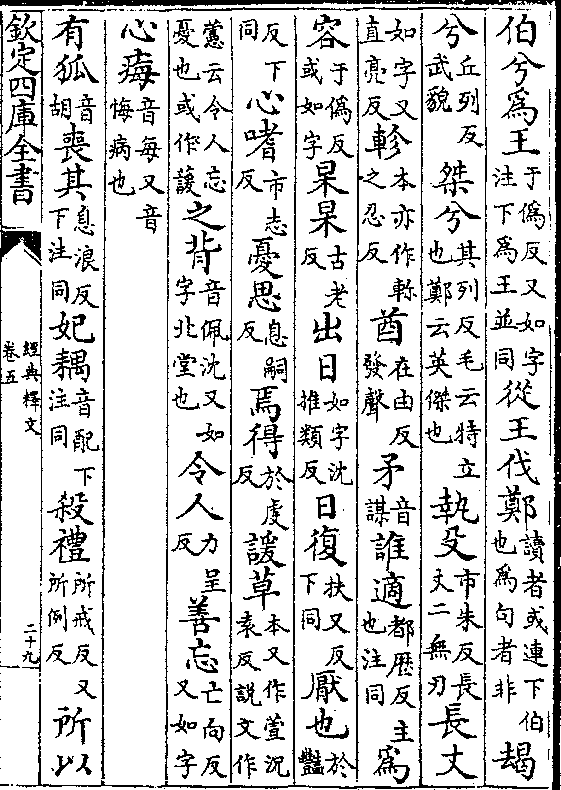 伯兮爲王于僞反又如字注下爲王並同從王伐鄭讀者或連下伯也爲句者非朅
兮丘列反武貌桀兮其列反毛云特立也鄭云英傑也執殳市朱反長丈二無刃長丈
如字又直亮反軫本亦作軫之忍反酋在由反發聲矛音謀誰適都厯反注同也主爲
容于僞反或如字杲杲古老反出日如字沈推類反日復扶又反下同厭也於豔
反下同心嗜市志反憂思息嗣反焉得於虔反諼草本又作萱沉袁反説文作
藼云令人忘憂也或作蘐之背音佩沈又如字北堂也令人力呈反善忘亡向反又如字
心痗音每又音悔病也
有狐音胡喪其息浪反下注同妃耦音配下注同殺禮所戒反又所例反所以
欽定四庫全書
經典釋文
卷五
二十九